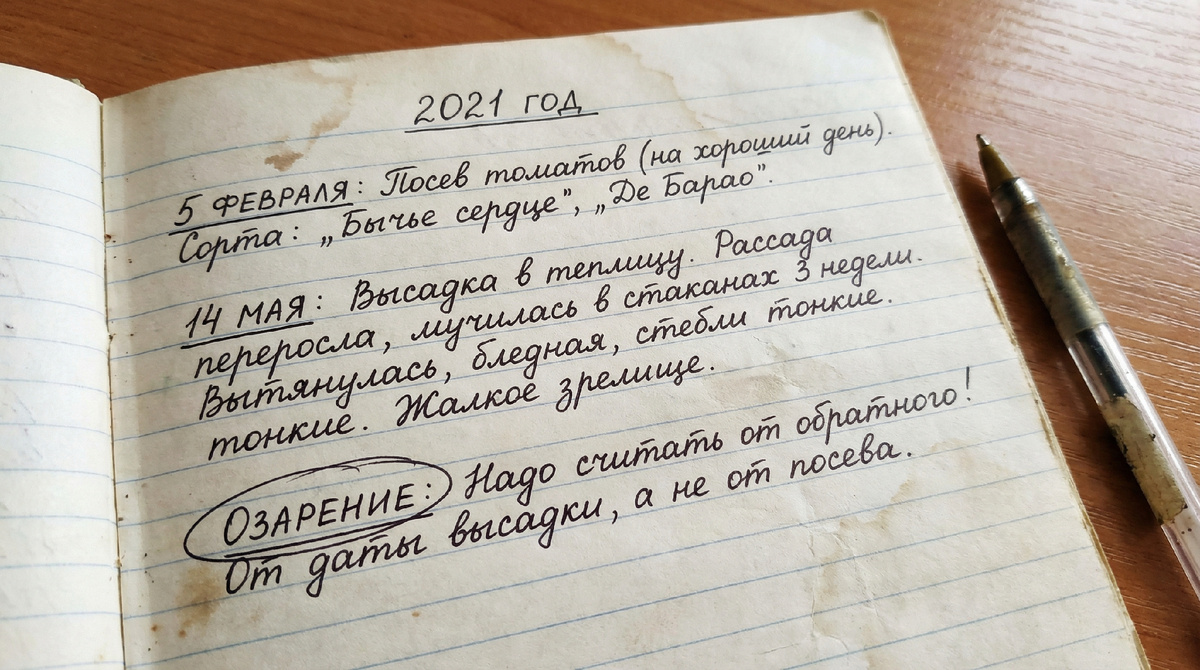 2021 ГОД
5 ФЕВРАЛЯ: Посев томатов (на хороший день).
Сорта: „Бычье сердце", „Де Барао".
14 МАЯ: Высадка в теплицу. Рассада
переросла, мучилась в стаканах 3 недели.
Вытянулась, бледная, стебли тонкие.
тонкие. Жалкое зрелище.
ОЗАРЕНИЕ: Надо считать от обратного!
От даты высадки, а не от посева.